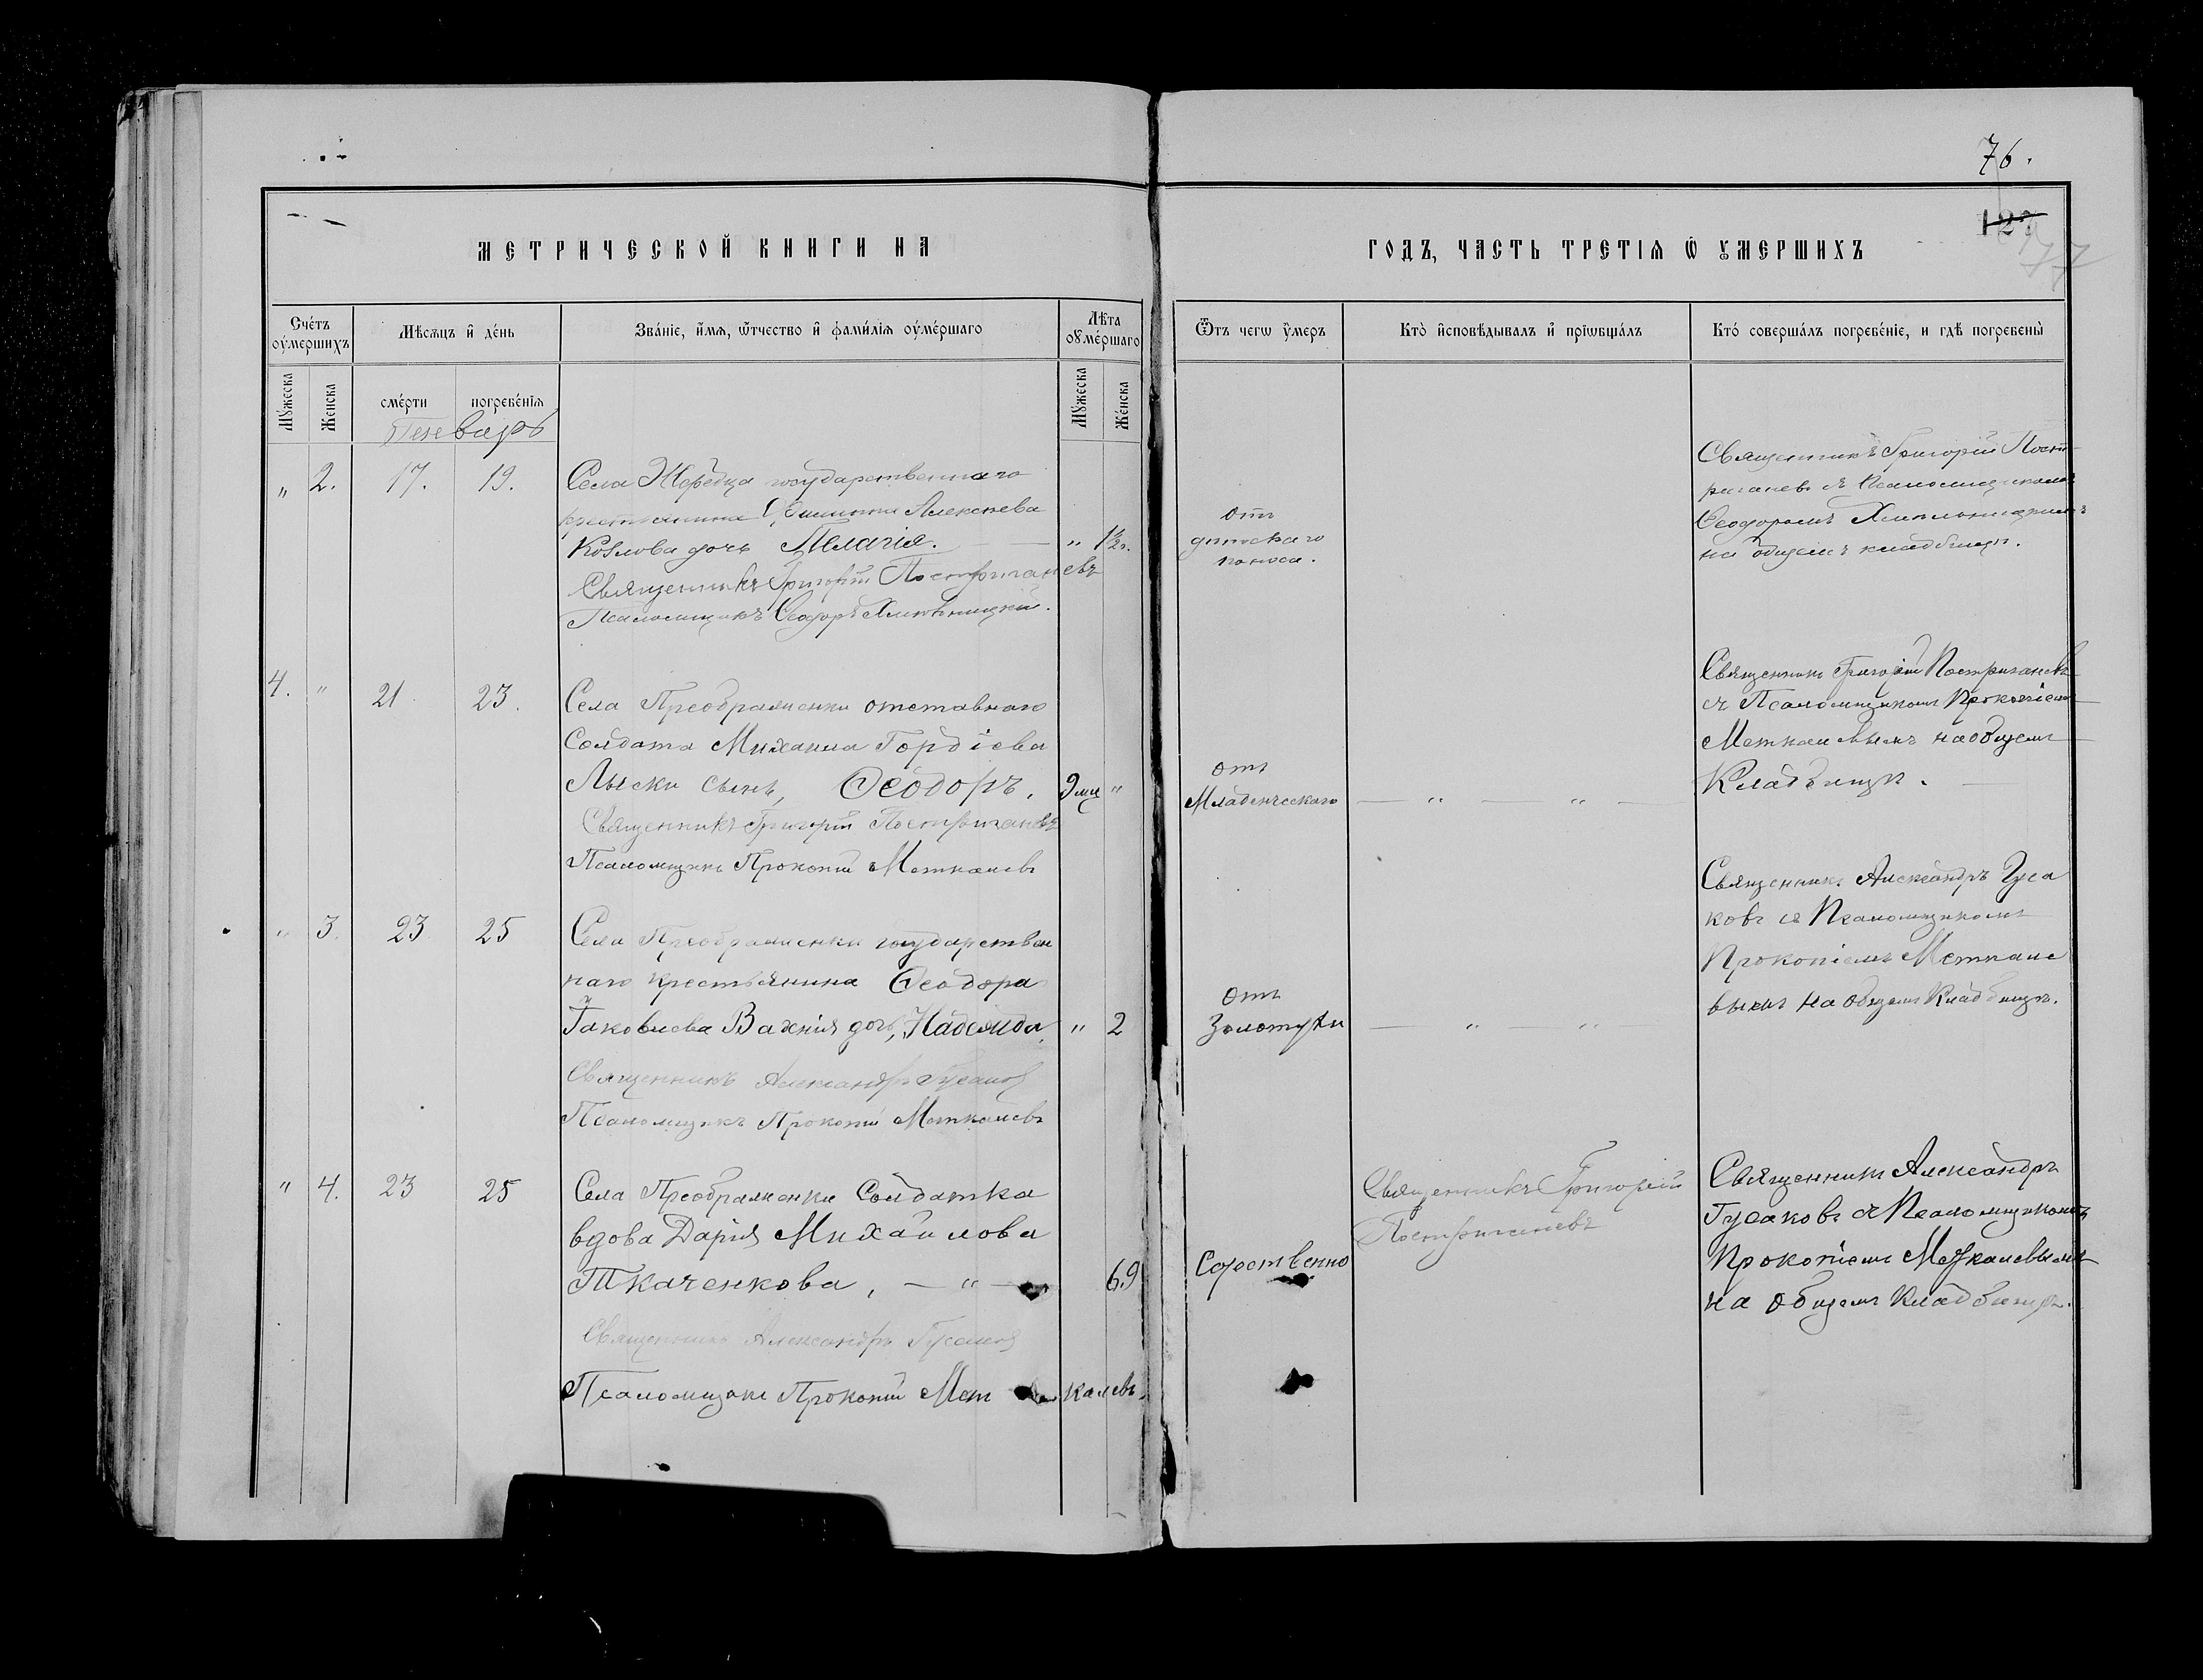 76.
127
77
МЕТРИЧЕСКОЙ КНИГИ НА
ГОДЪ, ЧАСТЬ ТРЕТІѦ Ѿ УМЕРШИХЪ
Счетъ оумершихъ
Мѣсѧцъ и день
Званіе, имѧ, ѿтчество и фамиліѧ оумершаго
Лѣта оумершаго
Ѿтъ чегѡ умеръ
Кто исповѣдывалъ и прїѡбщалъ
Кто совершалъ погребеніе, и гдѣ погребены
Мужеска
Женска
смерти
погребеніѧ
Мужеска
Женска
Генварь
" 2. 17. 19.
Села Жеребца государственнаго
крестьянина Алексѣева
Козлова дочь Пелагія. — " 1½ г.
Священникъ Григорій Постригачевъ
Псаломщикъ Ѳеодоръ
отъ
поноса.
Священникъ Григорій Пост
ригачевъ съ Псаломщикомъ
Ѳеодоромъ
на общемъ кладбищѣ.
4. " 21 23.
Села Преображенки отставнаго
Солдата Михаила Гордіева
Лыски сынъ, Ѳеодоръ. 9 мц "
Священникъ Григорій Постригачевъ
Псаломщикъ Прокопій Меткалевъ
отъ
Младенческаго — " — " —
Священникъ Григорій Постригачевъ
съ Псаломщикомъ Прокопіемъ
Меткалевымъ на общемъ
Кладбищѣ.
" 3. 23 25
Села Преображенки государствен
наго крестьянина Ѳеодора
Іаковлева дочь, Надежда, " 2
Священникъ Александръ Гусаковъ
Псаломщикъ Прокопій Меткалевъ
Отъ
Золотухи — " "
Священникъ Александръ Гуса
ковъ съ Псаломщикомъ
Прокопіемъ Меткале
вымъ на общемъ Кладбищѣ.
" 4. 23 25
Села Преображенки Солдатка
вдова Дарія Михайлова
Ткаченкова, — " — 69
Священникъ Александръ Гусаковъ
Псаломщикъ Прокопій Меткалевъ.
Священникъ Григорій
Постригачевъ
Священникъ Александръ
Гусаковъ съ Псаломщикомъ
Прокопіемъ Меткалевымъ
на общемъ Кладбищѣ.